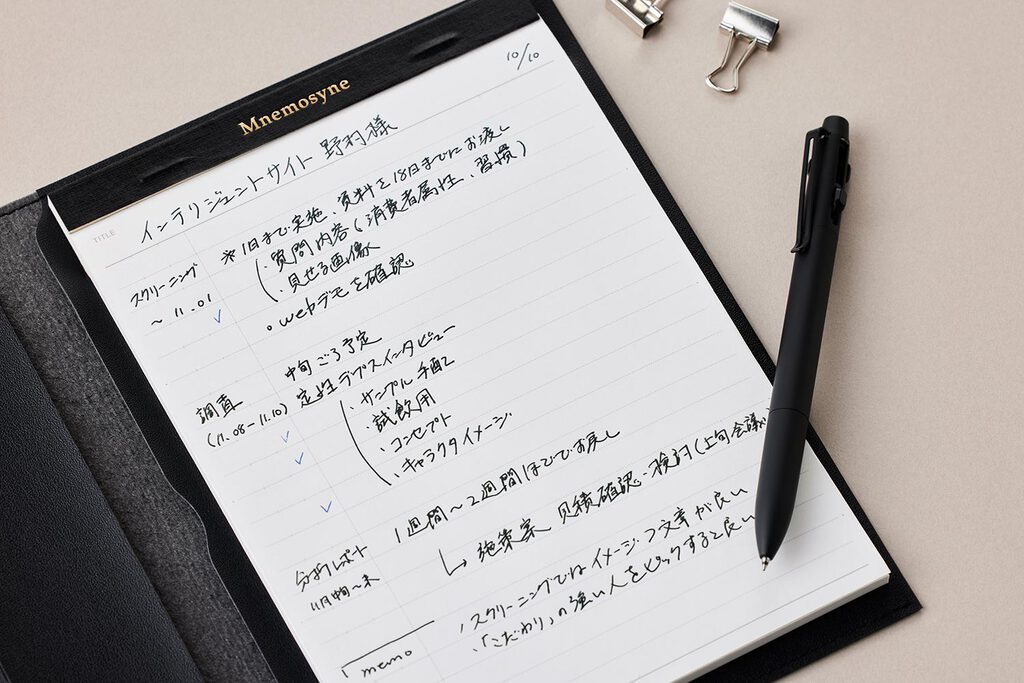 Mnemosyne
10/10
TITLE
インテリジェントサイト 野村様
※1日まで実施、資料を18日までにお渡し
・質問内容(消費者属性、習慣)
・見せる画像
スクリーニング
〜11.01
。webデモを確認
中旬ごろ予定
調査
(11.08-11.10)
定性デプスインタビュー
・サンプル手配
・試飲用
・コンセプト
・キャラクタイメージ
1週間〜2週間ほどでお戻し
↳ 施策案、見積確認・検討(上旬会議
分析レポート
11月中旬〜末
memo
・スクリーニングではイメージ・フ文章が良い
・「こだわり」の強い人をピックすると良い